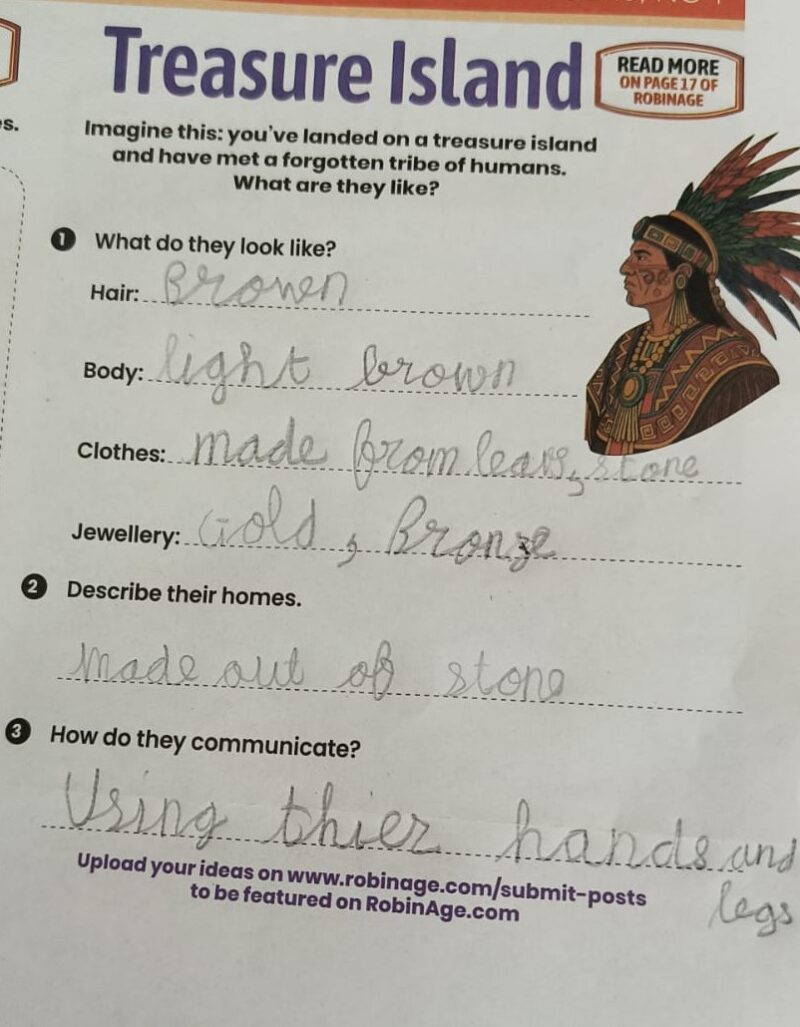 Treasure Island
READ MORE
ON PAGE 17 OF
ROBINAGE
s.
Imagine this: you've landed on a treasure island
and have met a forgotten tribe of humans.
What are they like?
1 What do they look like?
Hair: Brown
Body: light brown
Clothes: made from leavs, stone
Jewellery: Gold, Bronze
2 Describe their homes.
Made out of stone
3 How do they communicate?
Using thier hands and
legs
Upload your ideas on www.robinage.com/submit-posts
to be featured on RobinAge.com